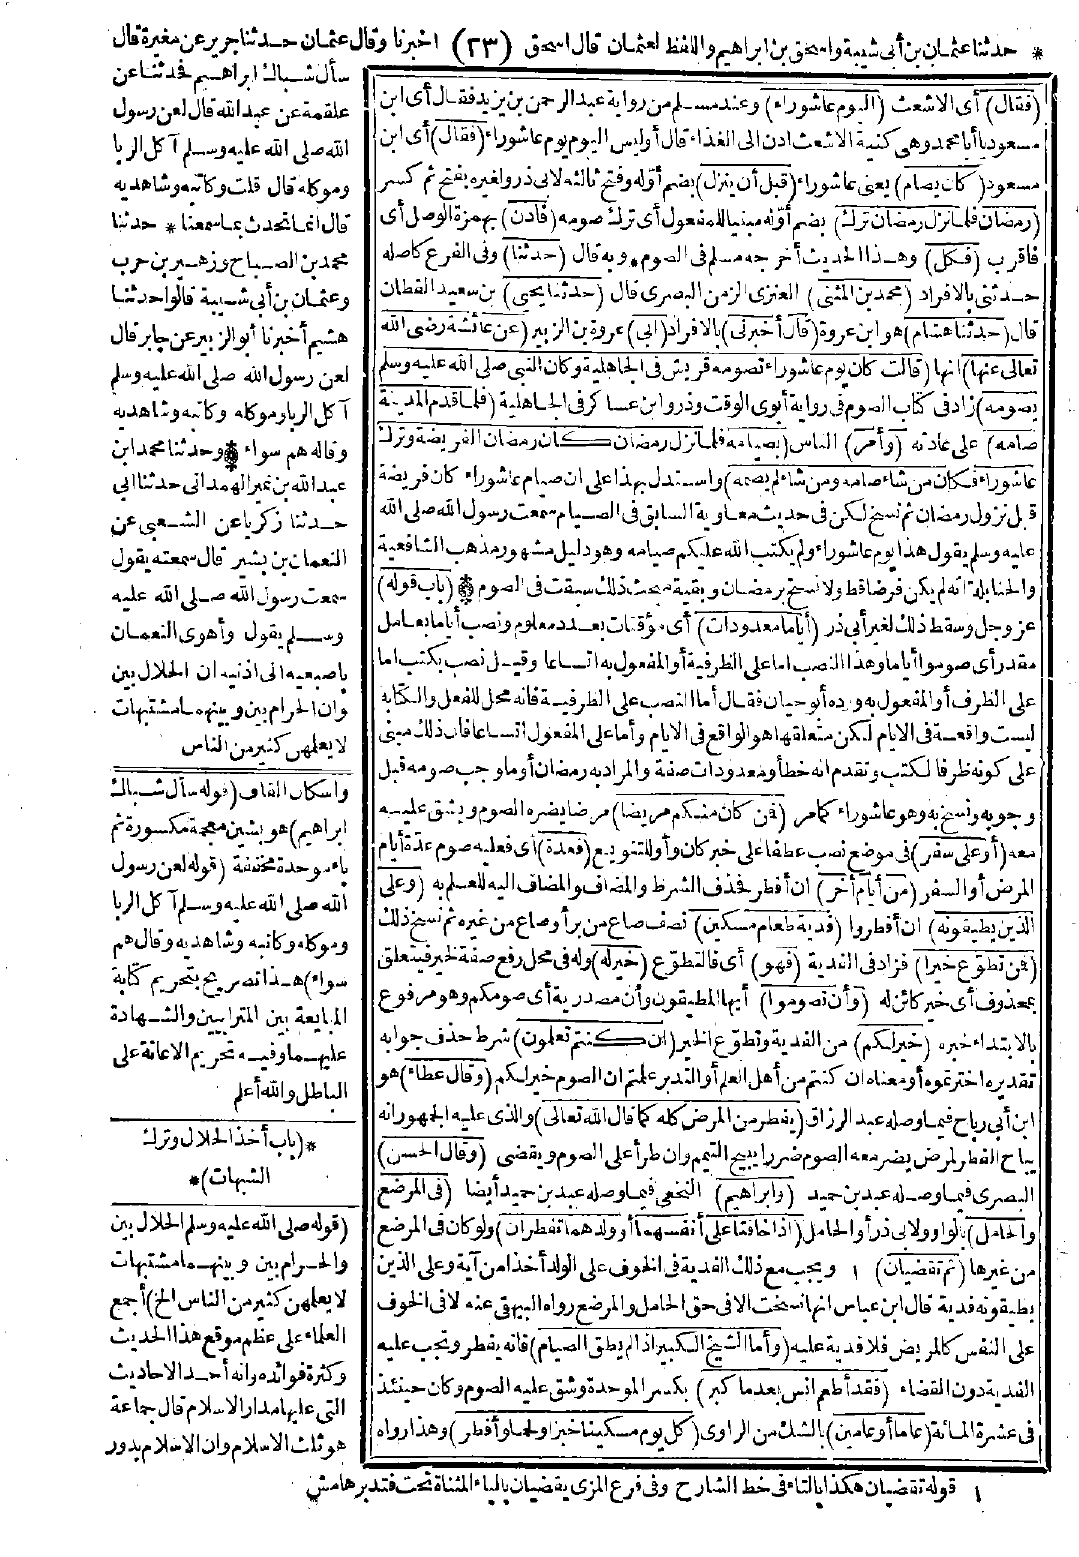 * حدثنا عثمان بن أبي شيبة واسحق بن ابراهيم واللفظ لعثمان قال اسحق (٢٣) اخبرنا وقال عثمان حدثنا جرير عن مغيرة قال
(فقال) أى الاشعث (اليوم عاشوراء) وعند مسلم من رواية عبد الرحمن بن يزيد فقال أى ابن
مسعود يا أبا محمد وهى كنية الاشعث ادن الى الغداء قال أوليس اليوم يوم عاشوراء (فقال) أى ابن
مسعود (كان يصام) يعنى عاشوراء (قبل أن ينزل) بضم أوّله وفتح ثالثه لابى ذر ولغيره بفتح ثم كسر
(رمضان فلما نزل رمضان ترك) بضم أوّله مبنيا للمفعول أى ترك صومه (فادن) بهمزة الوصل أى
فاقرب (فكل) وهذا الحديث أخرجه مسلم فى الصوم * وبه قال (حدثنا) وفى الفرع كاصله
حدثنى بالافراد (محمد بن المثنى) العنزى الزمن البصرى قال (حدثنا يحيى) بن سعيد القطان
قال (حدثنا هشام) هو ابن عروة (قال أخبرنى) بالافراد (ابى) عروة بن الزبير (عن عائشة رضى الله
تعالى عنها) انها (قالت كان يوم عاشوراء تصومه قريش فى الجاهلية وكان النبى صلى الله عليه وسلم
يصومه) زاد فى كتاب الصوم فى رواية أبوى الوقت وذر وابن عساكر فى الجاهلية (فلما قدم المدينة
صامه) على عادته (وأمر) الناس (بصيامه فلما نزل رمضان كان رمضان الفريضة وترك
عاشوراء فكان من شاء صامه ومن شاء لم يصمه) واستدل بهذا على ان صيام عاشوراء كان فريضة
قبل نزول رمضان ثم نسخ لكن فى حديث معاوية السابق فى الصيام سمعت رسول الله صلى الله
عليه وسلم يقول هذا يوم عاشوراء ولم يكتب الله عليكم صيامه وهو دليل مشهور مذهب الشافعية
والحنابلة انه لم يكن فرضا قط ولا نسخ برمضان وبقية مبحث ذلك سبقت فى الصوم * (باب قوله)
عز وجل وسقط ذلك لغير أبى ذر (أياما معدودات) أى مؤقتات بعدد معلوم ونصب أياما بعامل
مقدر أى صوموا أياما وهذا النصب اما على الظرفية أو المفعول به اتساعا وقيل نصب بكتب اما
على الظرف أو المفعول به ورده أبو حيان فقال أما النصب على الظرفية فانه محل للفعل والكتابة
ليست واقعة فى الايام لكن متعلقها هو الواقع فى الايام وأما على المفعول اتساعا فان ذلك مبنى
على كونه ظرفا لكتب وتقدم انه خطأ ومعدودات صفة والمراد به رمضان أو ما وجب صومه قبل
وجوبه ونسخ به وهو عاشوراء كما مر (فمن كان منكم مريضا) مرضا يضره الصوم ويشق عليه
معه (أو على سفر) فى موضع نصب عطفا على خبر كان وأو للتنويع (فعدة) أى فعليه صوم عدة أيام
المرض أو السفر (من أيام أخر) ان أفطر فحذف الشرط والمضاف والمضاف اليه للعلم به (وعلى
الذين يطيقونه) ان أفطروا (فدية طعام مسكين) نصف صاع من بر أو صاع من غيره ثم نسخ ذلك
(فمن تطوّع خيرا) فزاد فى الفدية (فهو) أى فالتطوّع (خير له) وله فى محل رفع صفة خير فيتعلق
بمحذوف أى خير كائن له (وأن تصوموا) أيها المطيقون وأن مصدرية أى صومكم وهو مرفوع
بالابتداء خبره (خير لكم) من الفدية وتطوّع الخير (ان كنتم تعلمون) شرط حذف جوابه
تقديره اخترتموه أو معناه ان كنتم من أهل العلم أو التدبر علمتم ان الصوم خير لكم (وقال عطاء) هو
ابن أبى رباح فيما وصله عبد الرزاق (يفطر من المرض كله كما قال الله تعالى) والذى عليه الجمهور انه
يباح الفطر لمرض يضر معه الصوم ضررا يبيح التيمم وان طرأ على الصوم ويقضى (وقال الحسن)
البصرى فيما وصله عبد بن حميد (وابراهيم) النخعى فيما وصله عبد بن حميد أيضا (فى المرضع
والحامل) بالواو ولابى ذر أو الحامل (اذا خافتا على أنفسهما أو ولدهما تفطران) ولو كان فى المرضع
من غيرها (ثم تقضيان) ١ ويجب مع ذلك الفدية فى الخوف على الولد أخذا من آية وعلى الذين
يطيقونه فدية قال ابن عباس انها نسخت الا فى حق الحامل والمرضع رواه البيهقى عنه لا فى الخوف
على النفس كالمريض فلا فدية عليه (وأما الشيخ الكبير اذا لم يطق الصيام) فانه يفطر وتجب عليه
الفدية دون القضاء (فقد أطعم انس بعدما كبر) بكسر الموحدة وشق عليه الصوم وكان حينئذ
فى عشرة المائة (عاما أو عامين) بالشك من الراوى (كل يوم مسكينا خبزا ولحما وأفطر) وهذا رواه
١ قوله تقضيان هكذا بالتاء فى خط الشارح وفى فرع المزى يقضيان بالياء المثناة تحت فتدبر هامش
سأل شباك ابراهيم فحدثنا عن
علقمة عن عبد الله قال لعن رسول
الله صلى الله عليه وسلم آكل الربا
وموكله قال قلت وكاتبه وشاهديه
قال انما نحدث بما سمعنا * حدثنا
محمد بن الصباح وزهير بن حرب
وعثمان بن أبى شيبة قالوا حدثنا
هشيم أخبرنا أبو الزبير عن جابر قال
لعن رسول الله صلى الله عليه وسلم
آكل الربا وموكله وكاتبه وشاهديه
وقال هم سواء * وحدثنا محمد ابن
عبد الله بن نمير الهمدانى حدثنا ابى
حدثنا زكريا عن الشعبى عن
النعمان بن بشير قال سمعته يقول
سمعت رسول الله صلى الله عليه
وسلم يقول وأهوى النعمان
باصبعيه الى اذنيه ان الحلال بين
وان الحرام بين وبينهما مشتبهات
لا يعلمهن كثير من الناس
واسكان القاف (قوله سأل شباك
ابراهيم) هو بشين معجمة مكسورة ثم
باء موحدة مخففة (قوله لعن رسول
الله صلى الله عليه وسلم آكل الربا
وموكله وكاتبه وشاهديه وقال هم
سواء) هذا تصريح بتحريم كتابة
المبايعة بين المترابيين والشهادة
عليهما وفيه تحريم الاعانة على
الباطل والله أعلم
*(باب أخذ الحلال وترك
الشبهات)*
(قوله صلى الله عليه وسلم الحلال بين
والحرام بين وبينهما مشتبهات
لا يعلمهن كثير من الناس الخ) أجمع
العلماء على عظم موقع هذا الحديث
وكثرة فوائده وانه أحد الاحاديث
التى عليها مدار الاسلام قال جماعة
هو ثلث الاسلام وان الاسلام يدور